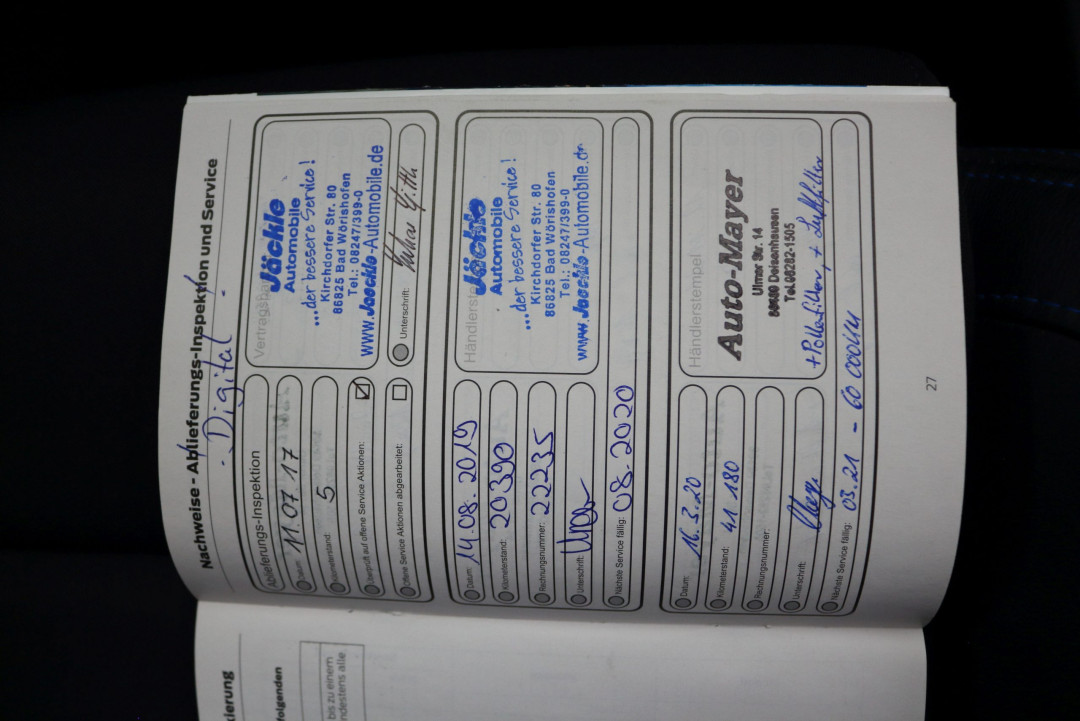 Nachweise - Ablieferungs-Inspektion und Service
- Digital -
Ablieferungs-Inspektion
Datum: 11.07.17
Kilometerstand: 5
Überprüft auf offene Service Aktionen: ☑
Offene Service Aktionen abgearbeitet: ☐
Jäckle
Automobile
...der bessere Service!
Kirchdorfer Str. 80
86825 Bad Wörishofen
Tel.: 08247/399-0
www.Jaeckle-Automobile.de
Unterschrift:
Datum: 14.08.2019
Kilometerstand: 20390
Rechnungsnummer: 22235
Unterschrift:
Nächste Service fällig: 08.2020
Jäckle
Automobile
...der bessere Service!
Kirchdorfer Str. 80
86825 Bad Wörishofen
Tel.: 08247/399-0
www.Jaeckle-Automobile.de
Datum: 16.3.20
Kilometerstand: 41 180
Rechnungsnummer:
Unterschrift:
Nächste Service fällig: 03.21 - 60 000km
Händlerstempel
Auto-Mayer
Ulmer Str. 14
Deisenhausen
Tel.08282-1505
+Pollenfilter, + Luftfilter
27
kierung
folgenden
bis zu einem
ndestens alle